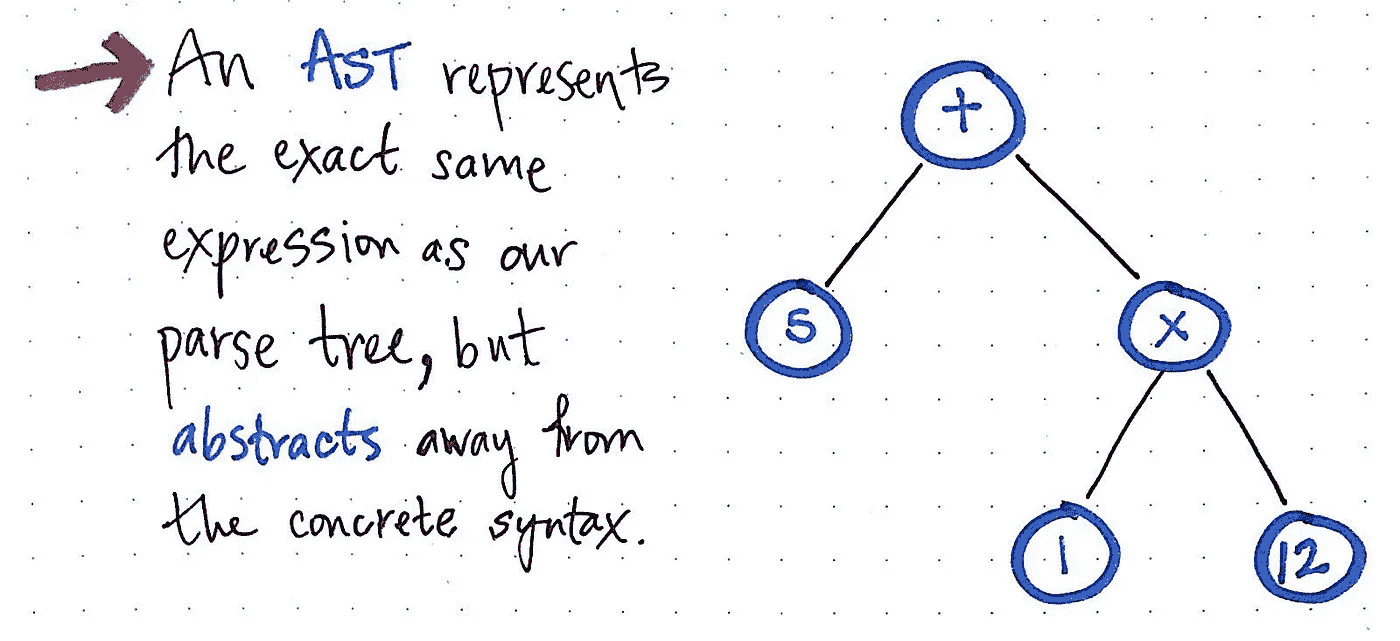 An AST represents
the exact same
expression as our
parse tree, but
abstracts away from
the concrete syntax.
+
5
x
1
12